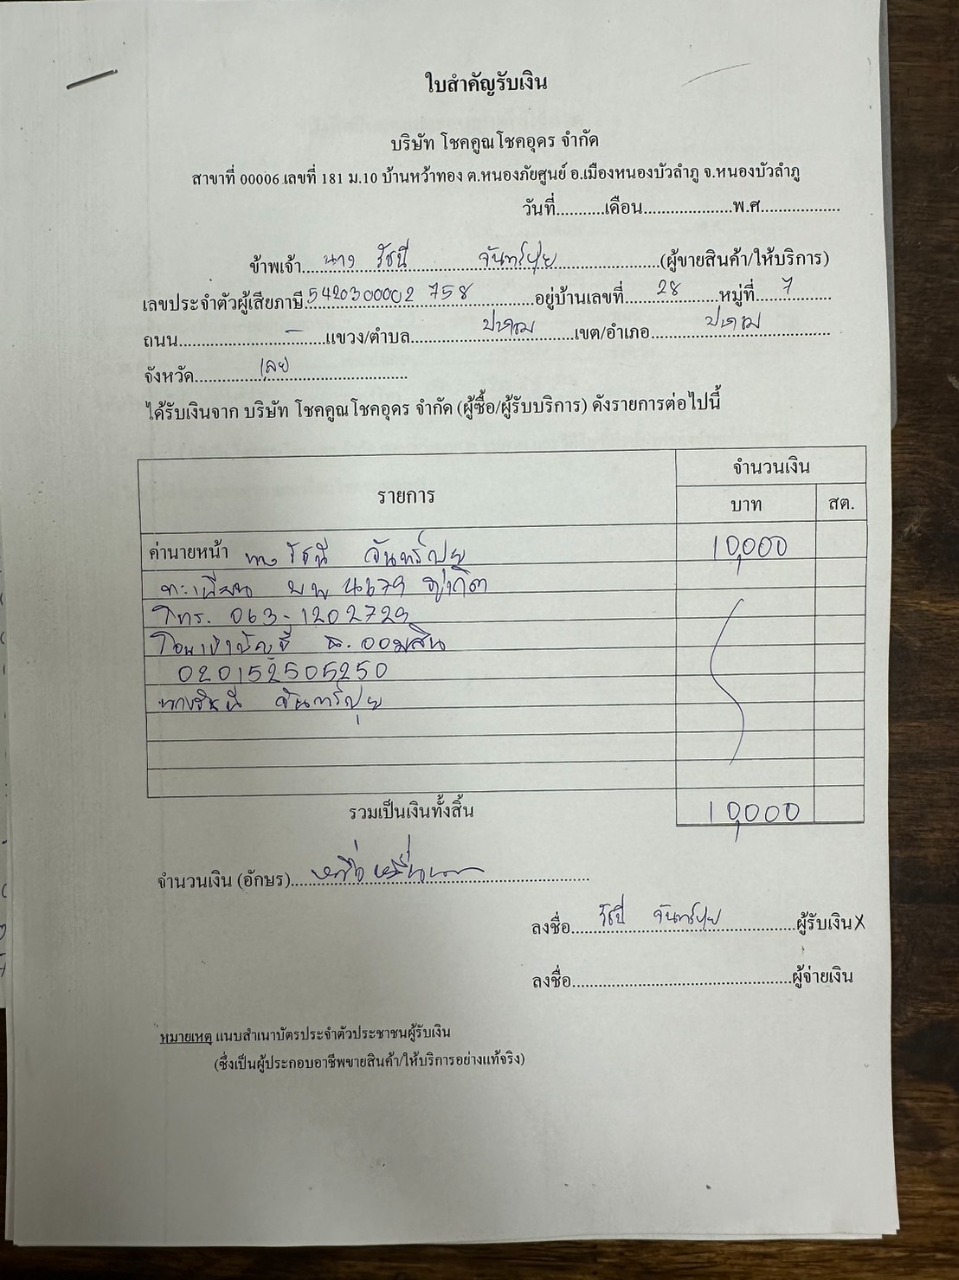 ใบสำคัญรับเงิน
บริษัท โชคคูณโชคอุดร จำกัด
สาขาที่ 00006 เลขที่ 181 ม.10 บ้านหว้าทอง ต.หนองภัยศูนย์ อ.เมืองหนองบัวลำภู จ.หนองบัวลำภู
วันที่...........เดือน....................พ.ศ..................
ข้าพเจ้า...นาง รัชนี จันทร์ปุย...(ผู้ขายสินค้า/ให้บริการ)
เลขประจำตัวผู้เสียภาษี.5420300002 758...อยู่บ้านเลขที่...28...หมู่ที่...7...
ถนน...-...แขวง/ตำบล...ปากชม...เขต/อำเภอ...ปากชม...
จังหวัด...เลย...
ได้รับเงินจาก บริษัท โชคคูณโชคอุดร จำกัด (ผู้ซื้อ/ผู้รับบริการ) ดังรายการต่อไปนี้
รายการ จำนวนเงิน
บาท สต.
ค่านายหน้า รัชนี จันทร์ปุย 10,000
ทะเบียน 4679 ภูเก็ต
โทร. 063-1202729
โอนเข้าบัญชี ธ.ออมสิน
020152505250
นางรัชนี จันทร์ปุย
รวมเป็นเงินทั้งสิ้น 10,000
จำนวนเงิน (อักษร)...หนึ่งหมื่น...
ลงชื่อ...รัชนี จันทร์ปุย...ผู้รับเงิน X
ลงชื่อ...ผู้จ่ายเงิน
หมายเหตุ แนบสำเนาบัตรประจำตัวประชาชนผู้รับเงิน
(ซึ่งเป็นผู้ประกอบอาชีพขายสินค้า/ให้บริการอย่างแท้จริง)